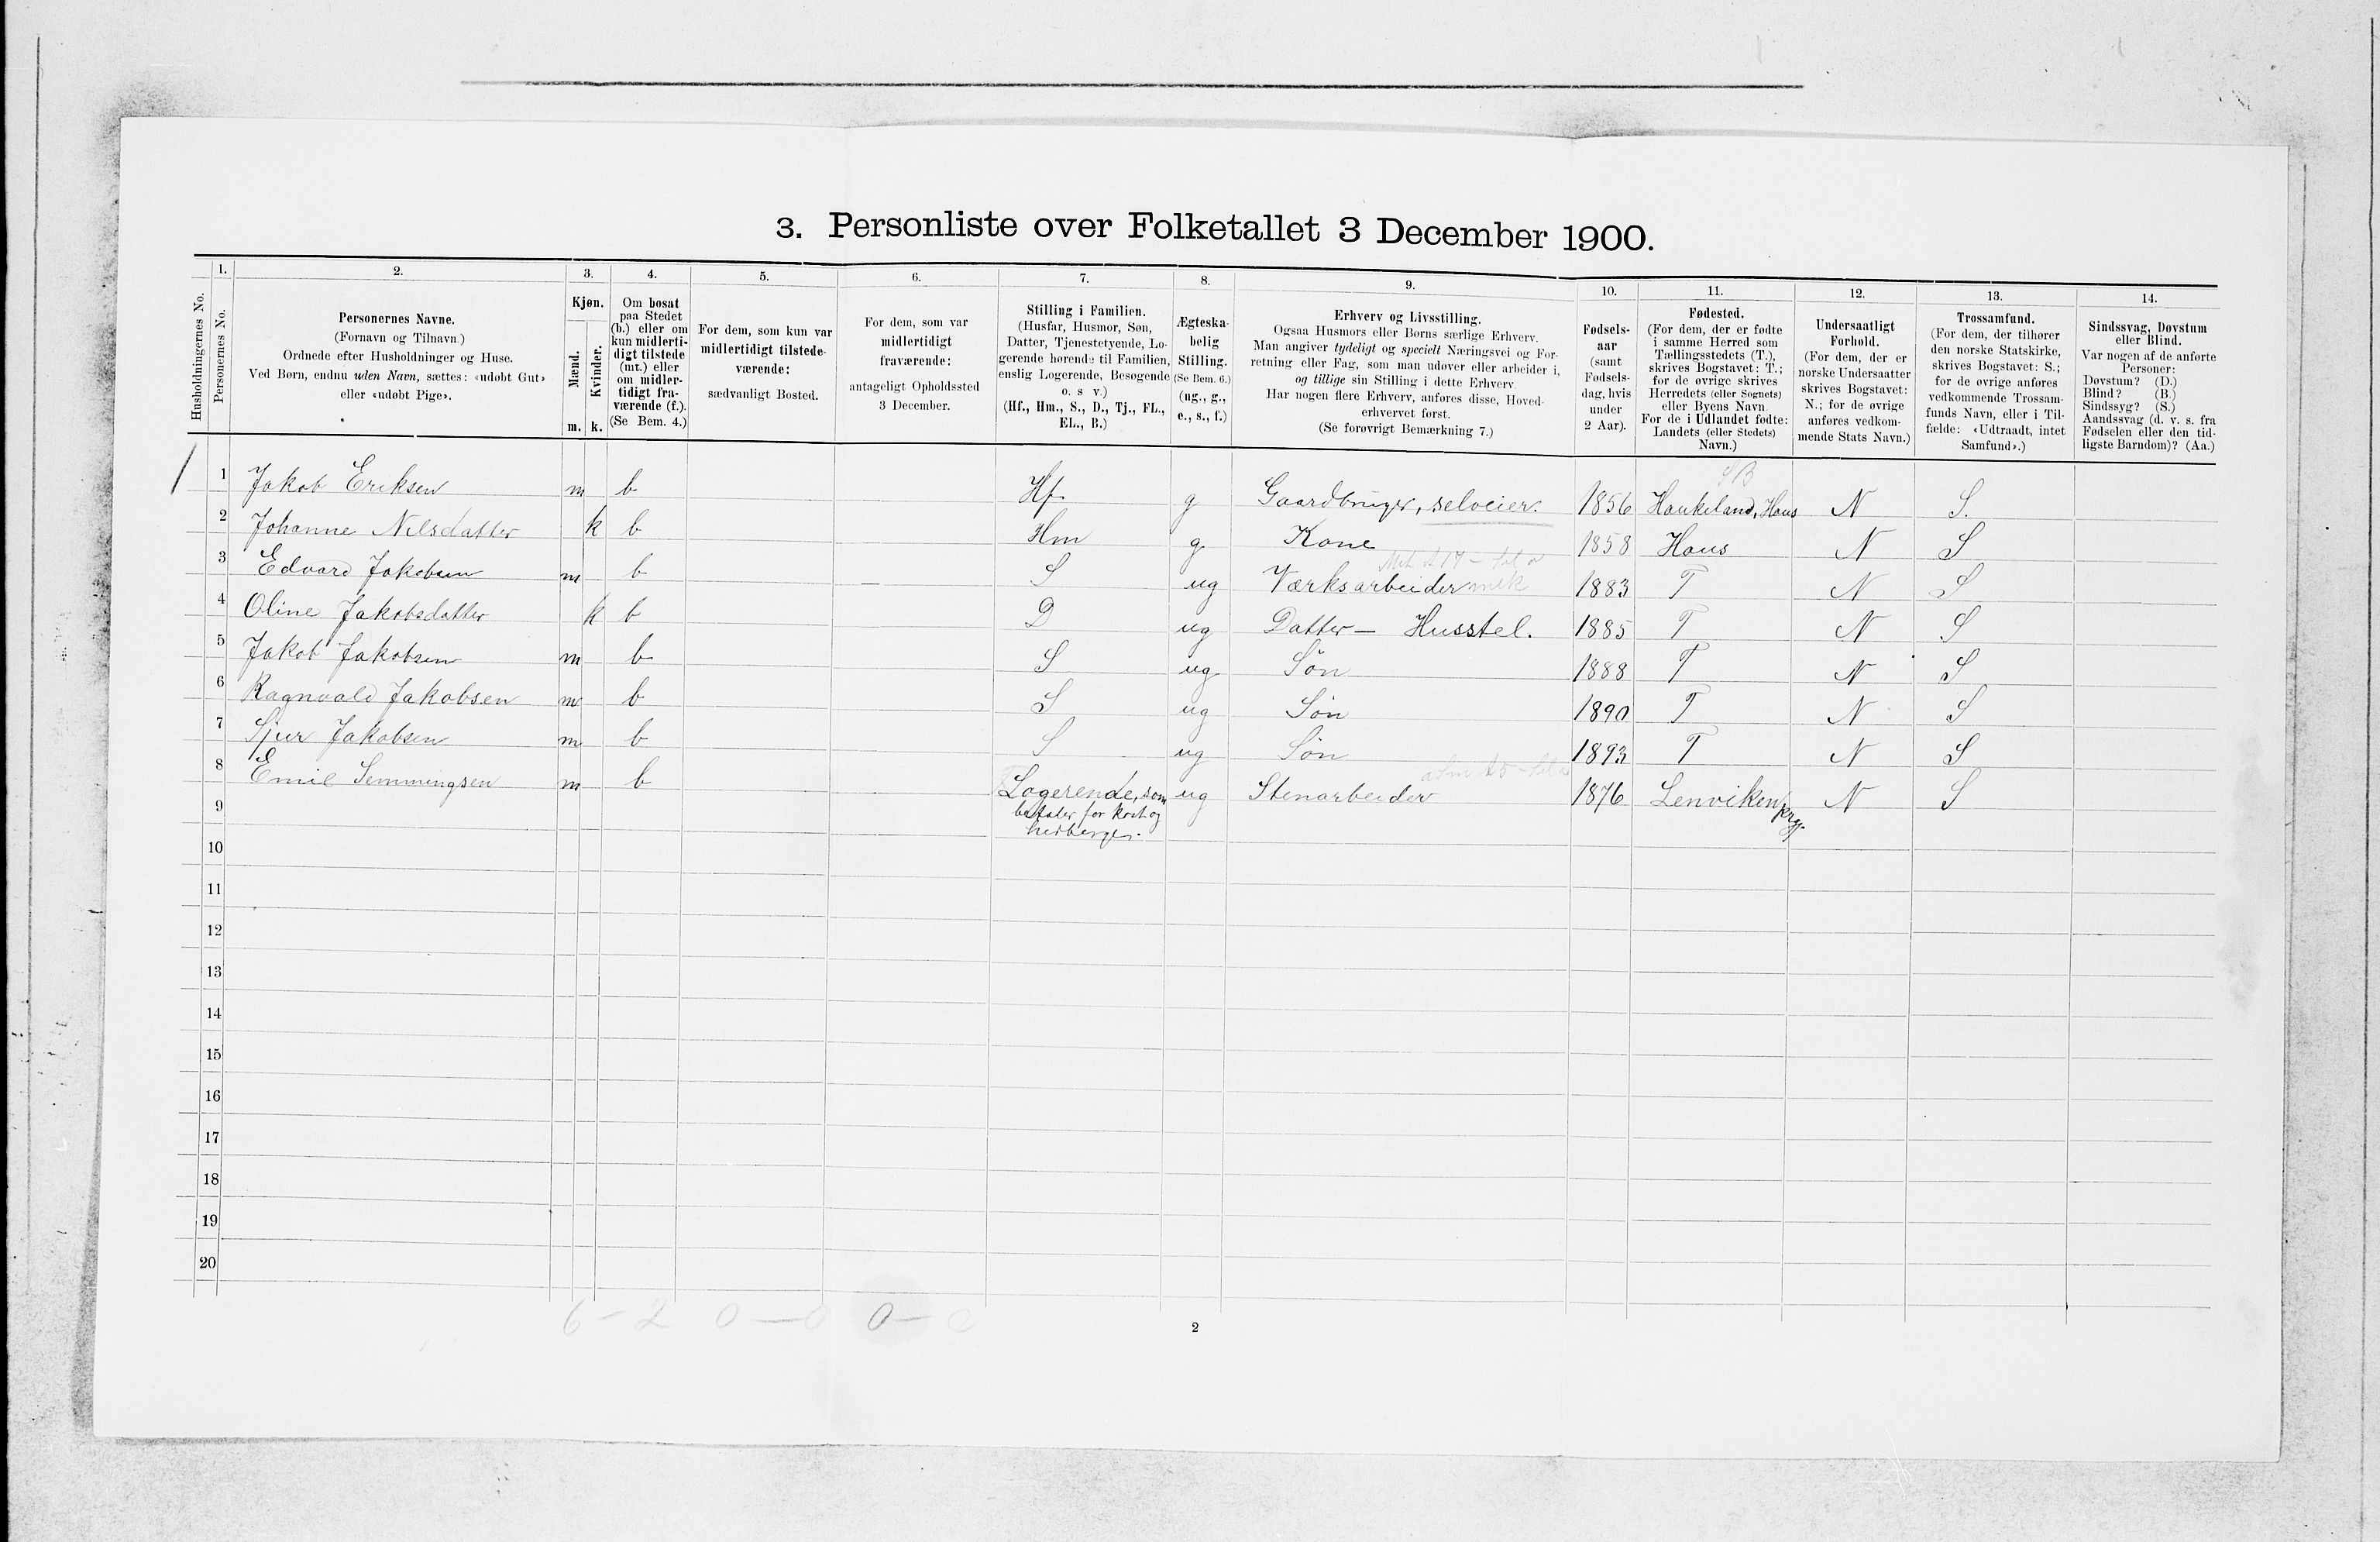 3. Personliste over Folketallet 3 December 1900.
1. 2. 3. 4. 5. 6. 7. 8. 9. 10. 11. 12. 13. 14.
Husholdningernes No.
Personernes No.
Personernes Navne.
(Fornavn og Tilnavn.)
Ordnede efter Husholdninger og Huse.
Ved Børn, endnu uden Navn, sættes: «udøbt Gut»
eller «udøbt Pige».
Kjøn.
Mænd.
Kvinder.
m. k.
Om bosat
paa Stedet
(b.) eller om
kun midlerti-
digt tilstede
(mt.) eller
om midler-
tidigt fra-
værende (f.).
(Se Bem. 4.)
For dem, som kun var
midlertidigt tilstede-
værende:
sædvanligt Bosted.
For dem, som var
midlertidigt
fraværende:
antageligt Opholdssted
3 December.
Stilling i Familien.
(Husfar, Husmor, Søn,
Datter, Tjenestetyende, Lo-
gerende hørende til Familien,
enslig Logerende, Besøgende
o. s v.)
(Hf., Hm., S., D., Tj., FL.,
EL., B.)
Ægteska-
belig
Stilling.
(Se Bem. 6.)
(ug., g.,
e., s., f.)
Erhverv og Livsstilling.
Ogsaa Husmors eller Børns særlige Erhverv.
Man angiver tydeligt og specielt Næringsvei og For-
retning eller Fag, som man udøver eller arbeider i,
og tillige sin Stilling i dette Erhverv.
Har nogen flere Erhverv, anføres disse, Hoved-
erhvervet først.
(Se forøvrigt Bemærkning 7.)
Fødsels-
aar
(samt
Fødsels-
dag, hvis
under
2 Aar).
Fødested.
(For dem, der er fødte
i samme Herred som
Tællingsstedets (T.),
skrives Bogstavet: T.;
for de øvrige skrives
Herredets (eller Sognets)
eller Byens Navn
For de i Udlandet fødte:
Landets (eller Stedets)
Navn.)
Undersaatligt
Forhold.
(For dem, der er
norske Undersaatter
skrives Bogstavet:
N.; for de øvrige
anføres vedkom-
mende Stats Navn.)
Trossamfund.
(For dem, der tilhører
den norske Statskirke,
skrives Bogstavet: S.;
for de øvrige anføres
vedkommende Trossam-
funds Navn, eller i Til-
fælde: «Udtraadt, intet
Samfund».)
Sindssvag, Døvstum
eller Blind.
Var nogen af de anførte
Personer:
Døvstum? (D.)
Blind? (B.)
Sindssyg? (S.)
Aandssvag (d. v. s. fra
Fødselen eller den tid-
ligste Barndom)? (Aa.)
SB
1 Jakob Eriksen m b Hf g Gaardbruger, selveier. 1856 Haukeland, Haus N S.
2 Johanne Nilsdatter k b Hm g Kone 1858 Haus N S
3 Edvard Jakobsen m b S ug Værksarbeider mek 1883 T N S
4 Oline Jakobsdatter k b D ug Datter — Husstel. 1885 T N S
5 Jakob Jakobsen m b S ug Søn 1888 T N S
6 Ragnvald Jakobsen m b S ug Søn 1890 T N S
7 Sjur Jakobsen m b S ug Søn 1893 T N S
8 Emil Semmingsen m b Logerende, som ug Stenarbeider 1876 Lenviken prgj. N S
9 betaler for kost og
herberge.
10
11
12
13
14
15
16
17
18
19
20
6 – 2 0 – 0 0 – 0
2